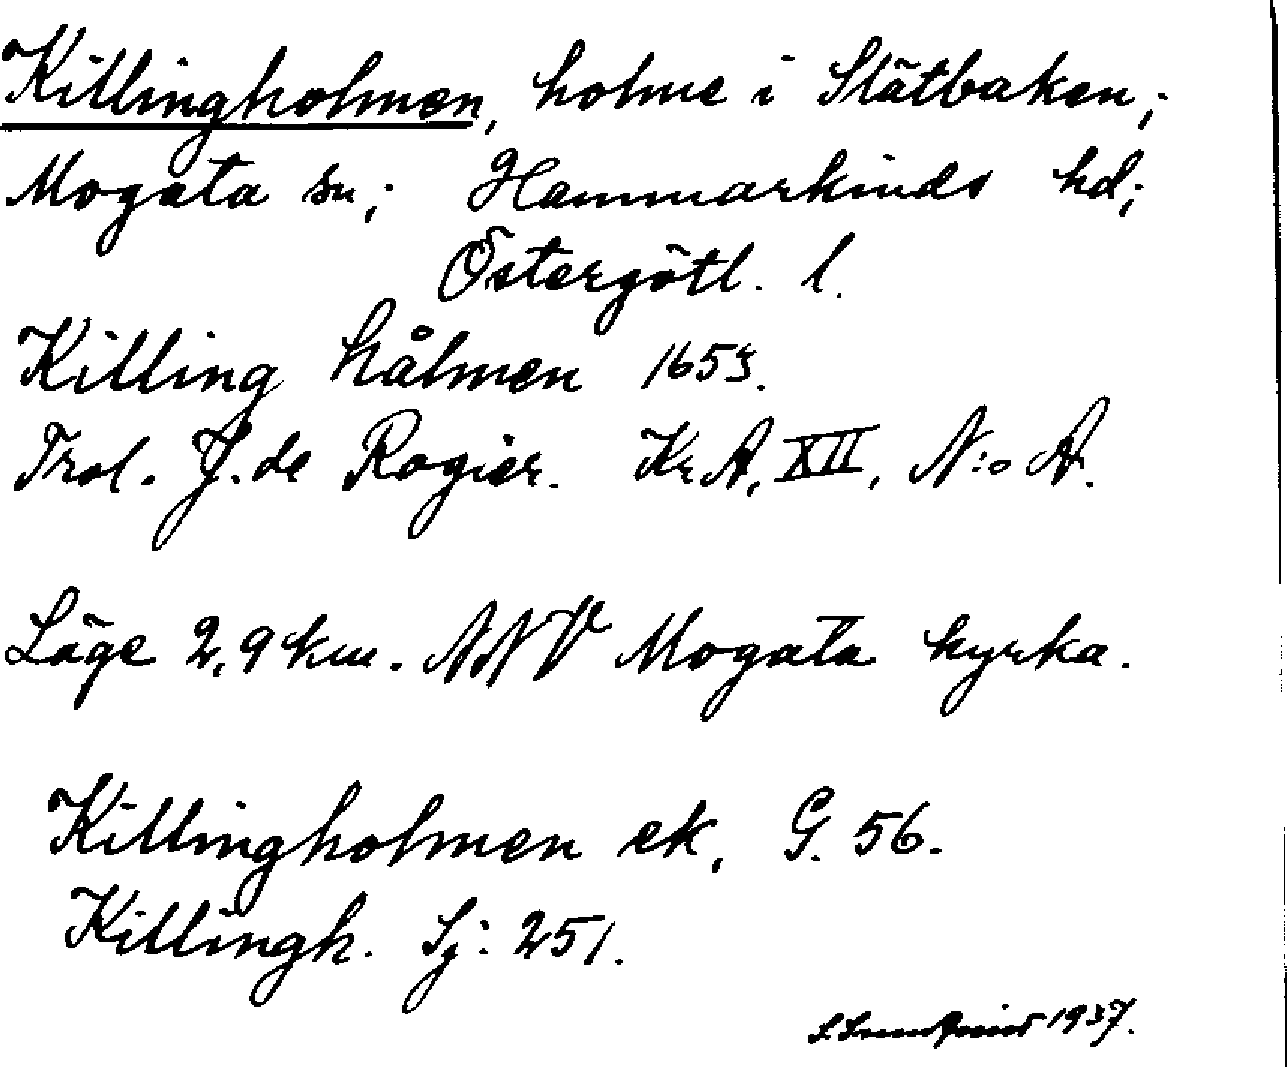 Killingholmen, holme i Slätbaken;
Mogata sn; Hammarkinds hd;
Östergötl. l.
Killing hålmen 1653.
Trol. J. de Rogier. KrA, XII, N:o A.
Läge 2,9 km. NNV Mogata kyrka.
Killingholmen ek, G. 56.
Killingh. Sj: 251.
S. Lundqvist 1937.